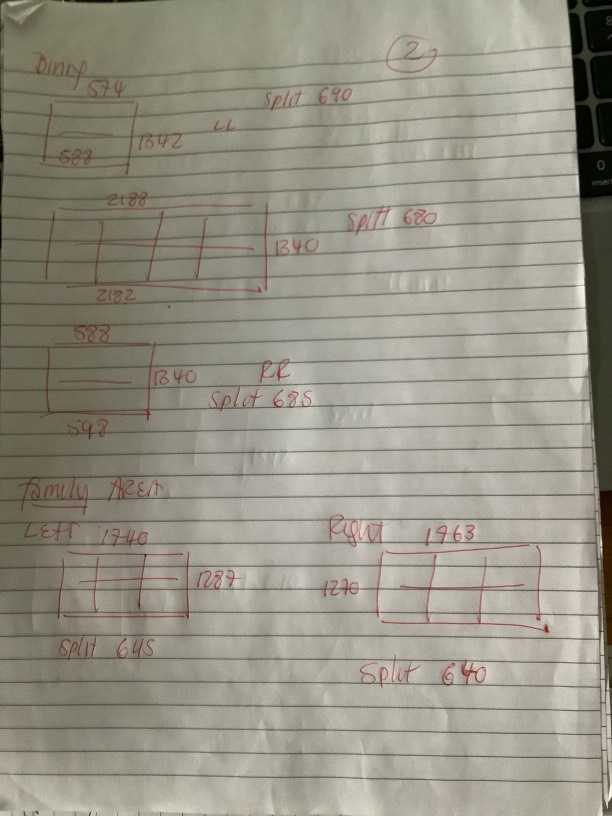 2
Dinnp
574
Split 690
1342 LL
588
2188
Split 680
1340
2182
588
1340 RR
Split 685
598
Family AREA
LEFT 1740
Right 1763
1287
1270
Split 645
Split 640